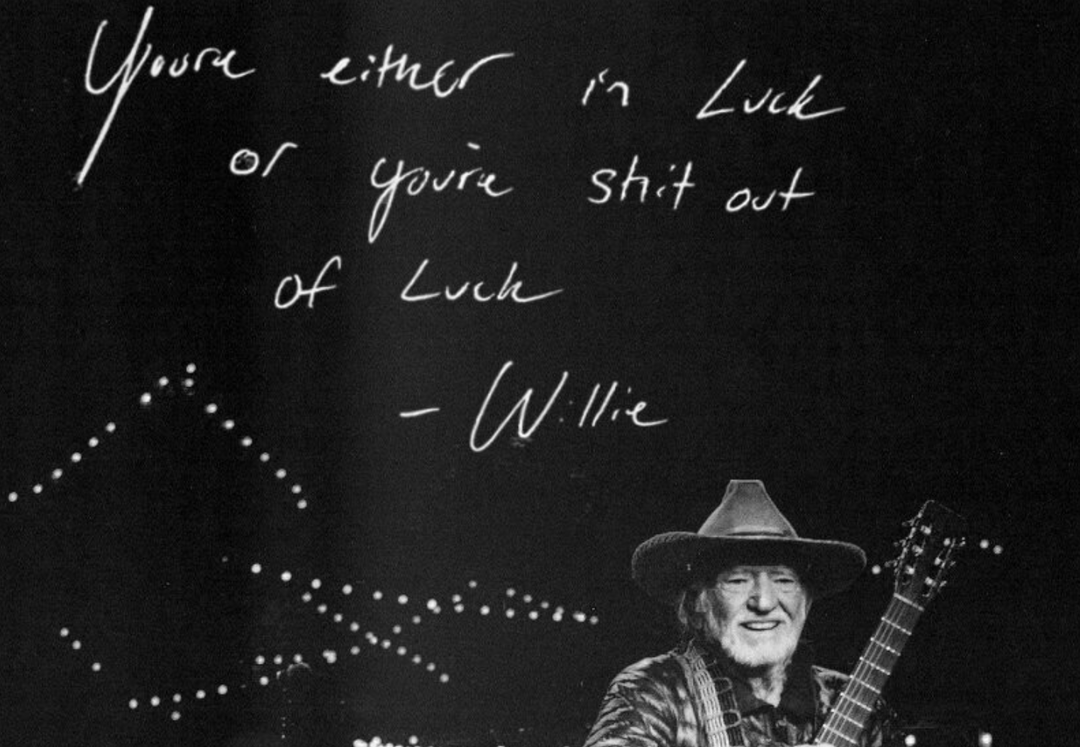 You're either in Luck
or you're shit out
of Luck
- Willie